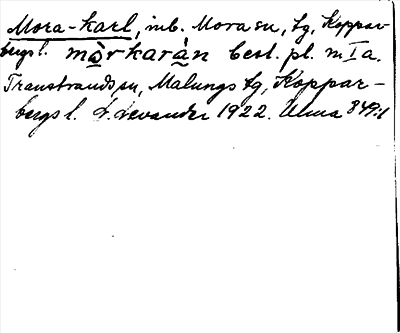 Mora-karl, inb. Mora sn, tg, Koppar-
bergs l. mȯ̠rkarà̠n best. pl. m I a.
Transtrands sn, Malungs tg, Koppar-
bergs l. L. Levander 1922. Ulma 349:1